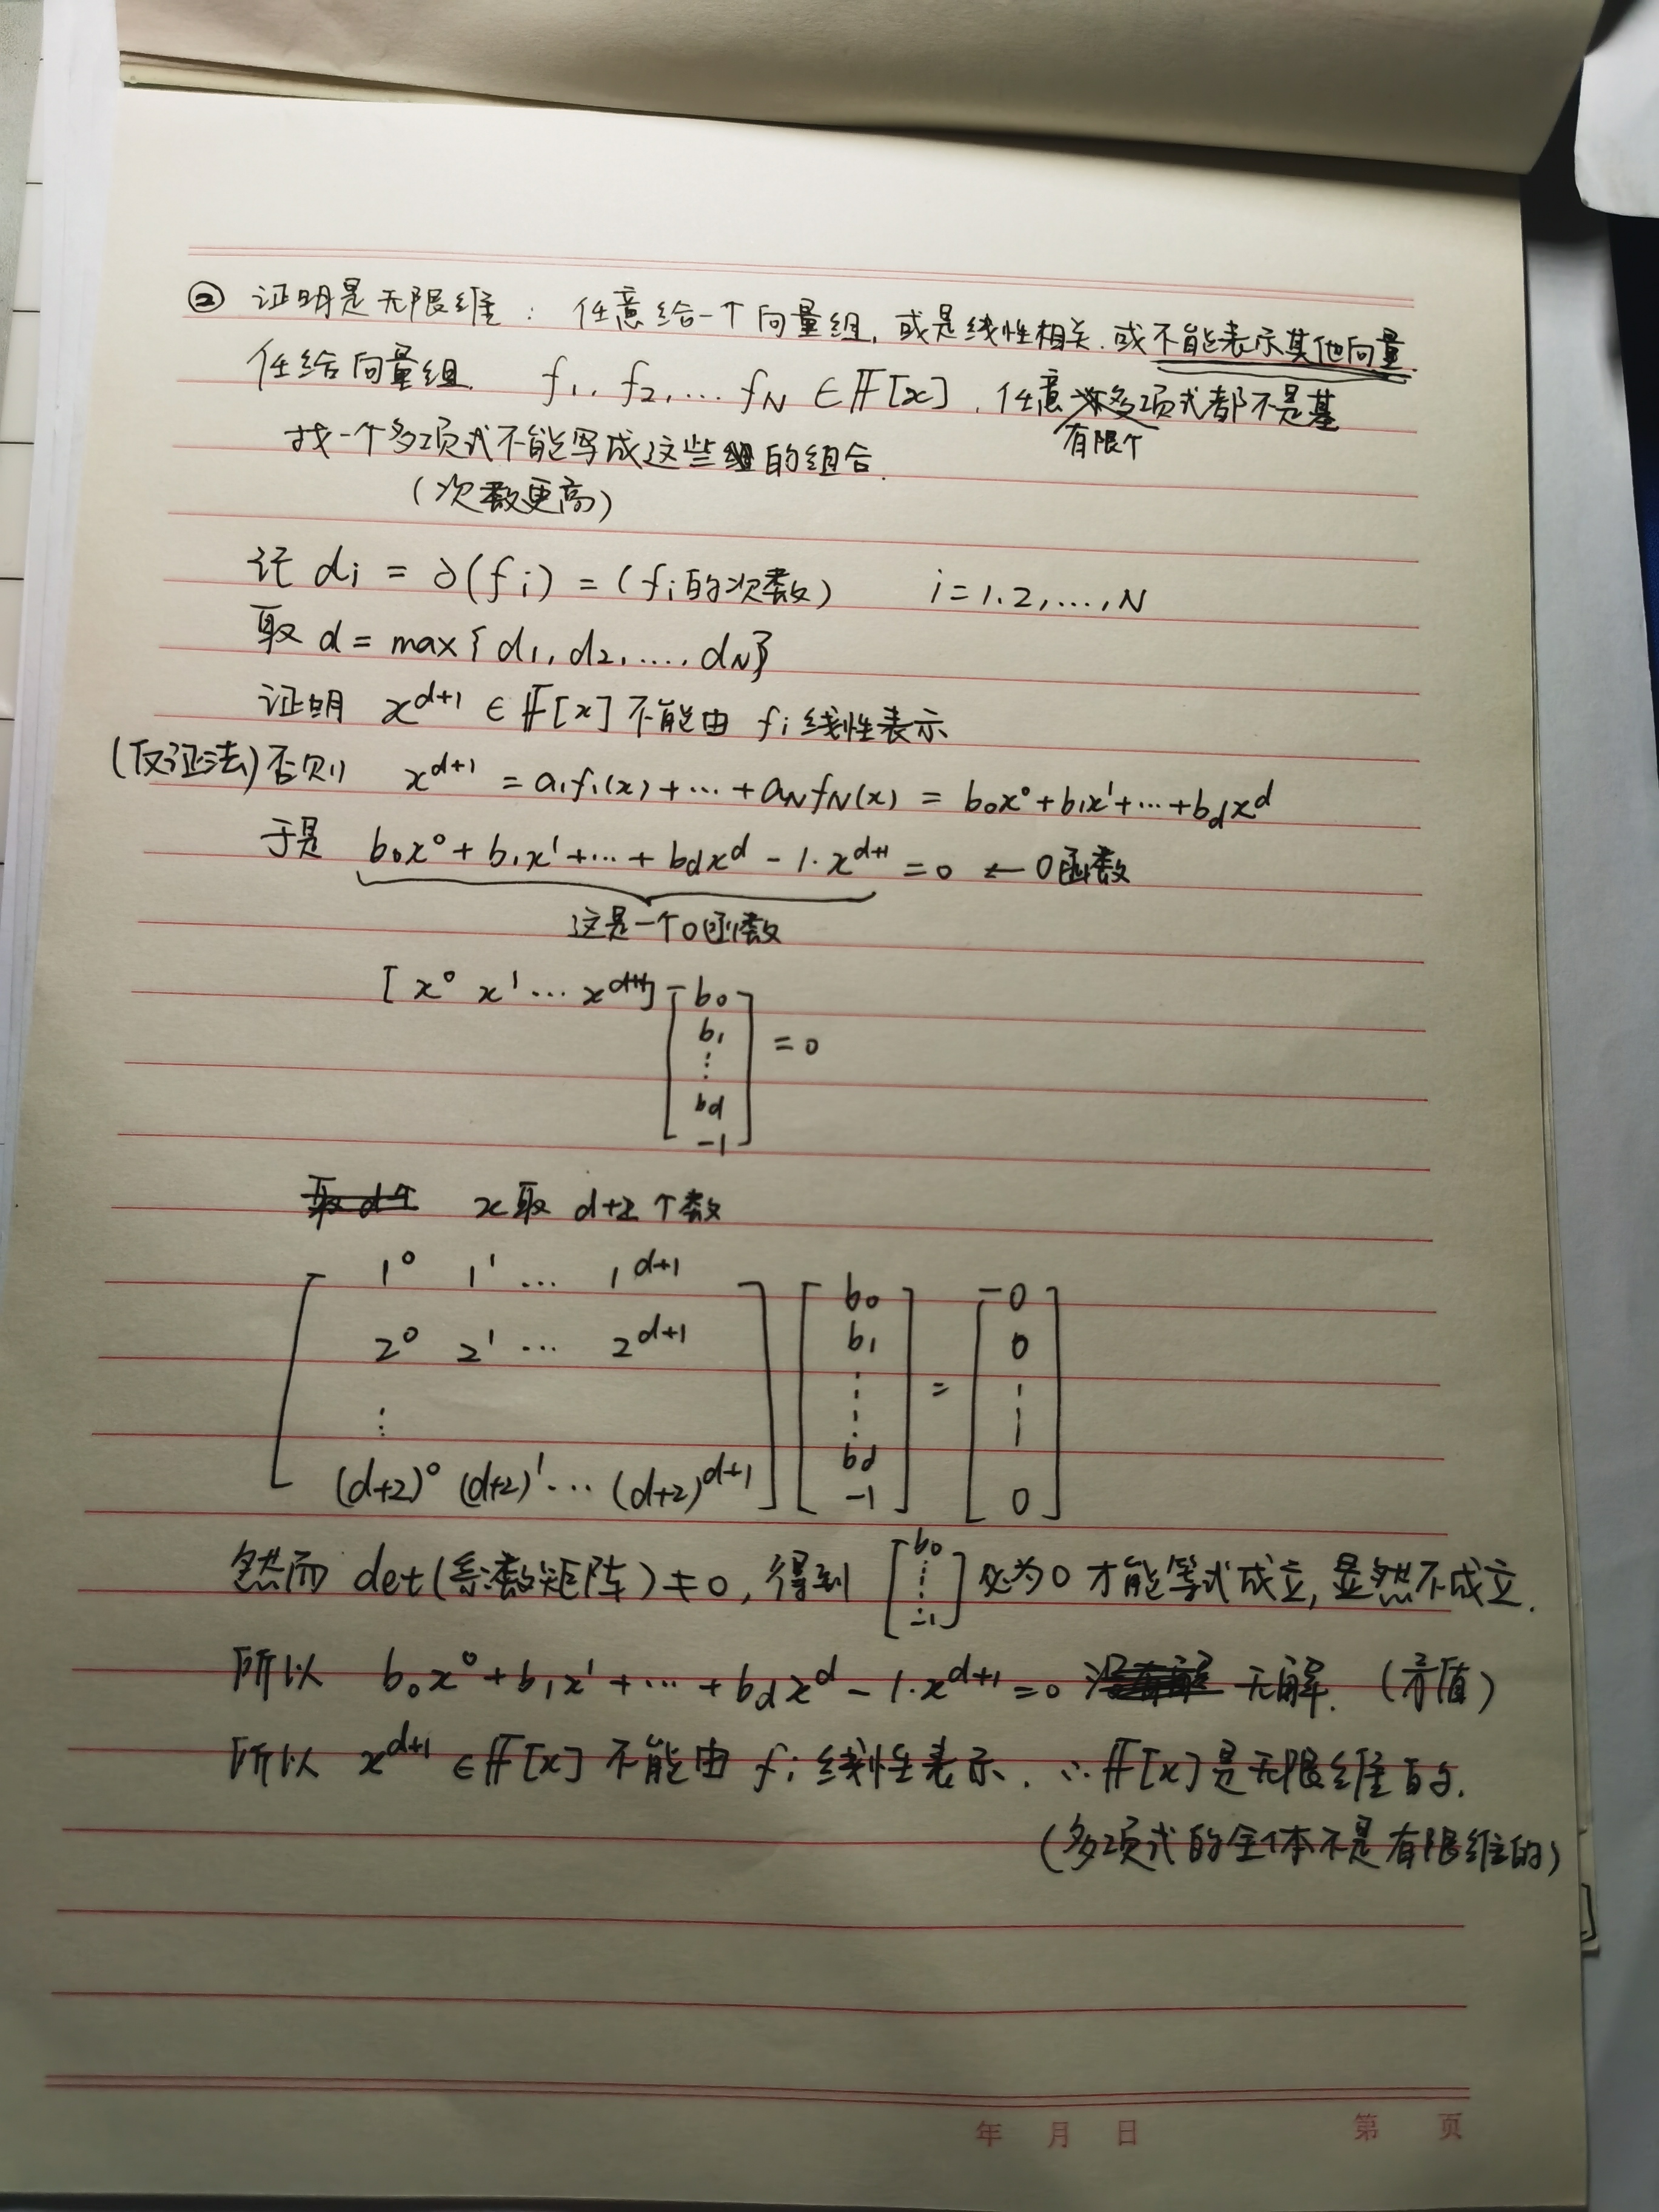 ② 证明是无限维：任意给一个向量组，或是线性相关，或不能表示其他向量.
任给向量组 f₁, f₂, … f_N ∈ 𝔽[x]，任意多项式都不是基
有限个
找一个多项式不能写成这些的组合.
（次数更高）
记 dᵢ = ∂(fᵢ) = (fᵢ的次数) i = 1.2, …, N
取 d = max{d₁, d₂, …, d_N}
证明 x^{d+1} ∈ 𝔽[x] 不能由 fᵢ 线性表示
(反证法) 否则 x^{d+1} = a₁f₁(x) + ⋯ + a_N f_N(x) = b₀x⁰ + b₁x¹ + ⋯ + b_d x^d
于是 b₀x⁰ + b₁x¹ + ⋯ + b_d x^d − 1·x^{d+1} = 0 ← 0函数
这是一个0函数
[x⁰ x¹ ⋯ x^{d+1}] [b₀ b₁ ⋮ b_d −1] = 0
取d个 x取 d+2个数
[1⁰ 1¹ ⋯ 1^{d+1}
2⁰ 2¹ ⋯ 2^{d+1}
⋮
(d+2)⁰ (d+2)¹ ⋯ (d+2)^{d+1}] [b₀ b₁ ⋮ b_d −1] = [0 0 ⋮ 0]
然而 det(系数矩阵) ≠ 0, 得到 [b₀ ⋮ −1] 必为0才能等式成立, 显然不成立.
所以 b₀x⁰ + b₁x¹ + ⋯ + b_d x^d − 1·x^{d+1} = 0 无解.（矛值）
所以 x^{d+1} ∈ 𝔽[x] 不能由 fᵢ 线性表示. ∴ 𝔽[x] 是无限维的.
（多项式的全体不是有限维的）
年 月 日 第 页